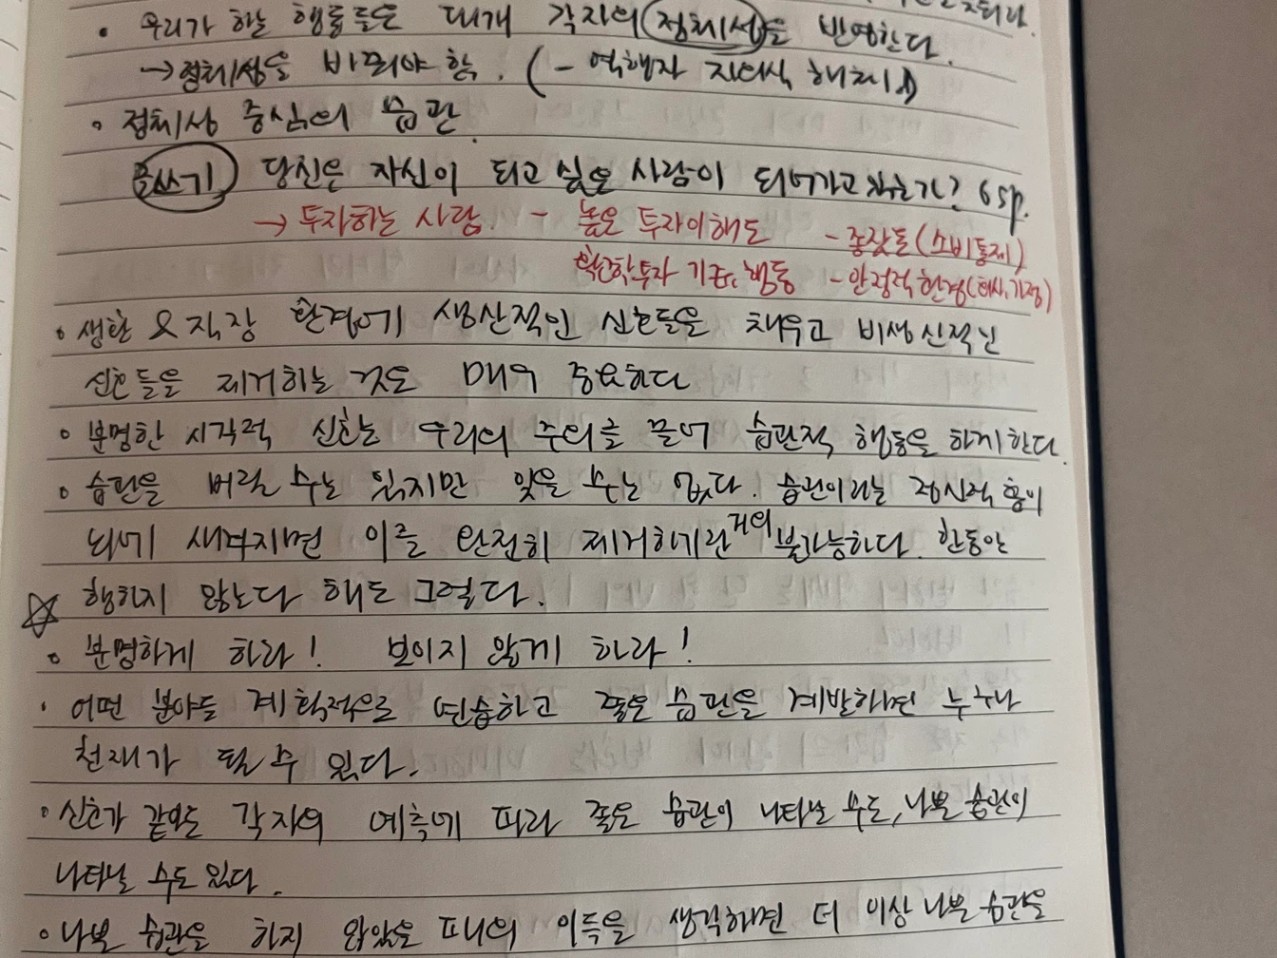 • 우리가 하는 행동들은 대개 각자의 정체성을 반영한다.
→ 정체성을 바꿔야 함. (- 역행자 자의식 해체)
• 정체성 중심의 습관.
글쓰기 당신은 자신이 되고 싶은 사람이 되어가고 있는가? 65p.
→ 투자하는 사람. - 높은 투자이해도 - 종잣돈(소비통제)
투자 기준, 행동 - 안정적 환경(회사, 가정)
• 생활 & 직장 환경에 생산적인 신호들을 채우고 비생산적인
신호들을 제거하는 것도 매우 중요하다
• 분명한 시각적 신호는 우리의 주의를 끌어 습관적 행동을 하게한다.
• 습관을 버릴 수는 있지만 잊을 수는 없다. 습관이라는 정신적 홈이
되어 새겨지면 이를 완전히 제거하기란 거의 불가능하다. 한동안
행하지 않는다 해도 그렇다.
• 분명하게 하라! 보이지 않게 하라!
• 어떤 분야든 계획적으로 연습하고 좋은 습관을 계발하면 누구나
천재가 될 수 있다.
• 신호가 같아도 각자의 예측에 따라 좋은 습관이 나타날 수도, 나쁜 습관이
나타날 수도 있다.
• 나쁜 습관을 하지 않았을 때의 이득을 생각하면 더 이상 나쁜 습관을